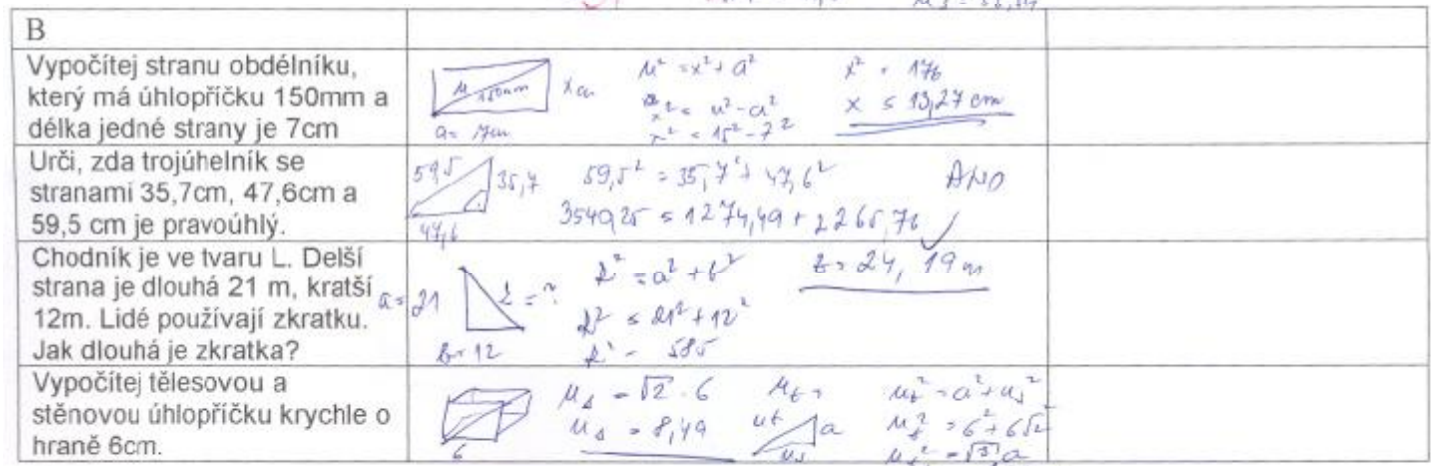 B
Vypočítej stranu obdélníku,
který má úhlopříčku 150mm a
délka jedné strany je 7cm
u 150mm
x cm
a = 7cm
u² = x² + a²
x² = u² - a²
x² = 15² - 7²
x² = 176
x = 13,27 cm
Urči, zda trojúhelník se
stranami 35,7cm, 47,6cm a
59,5 cm je pravoúhlý.
59,5
35,7
47,6
59,5² = 35,7² + 47,6²
3540,25 = 1274,49 + 2265,76
ANO
Chodník je ve tvaru L. Delší
strana je dlouhá 21 m, kratší
12m. Lidé používají zkratku.
Jak dlouhá je zkratka?
a = 21
z = ?
b = 12
z² = a² + b²
z² = 21² + 12²
z² = 585
z = 24,19 m
Vypočítej tělesovou a
stěnovou úhlopříčku krychle o
hraně 6cm.
6
us = √2 · 6
us = 8,49
ut =
ut
a
us
ut² = a² + us²
ut² = 6² + 6√2²